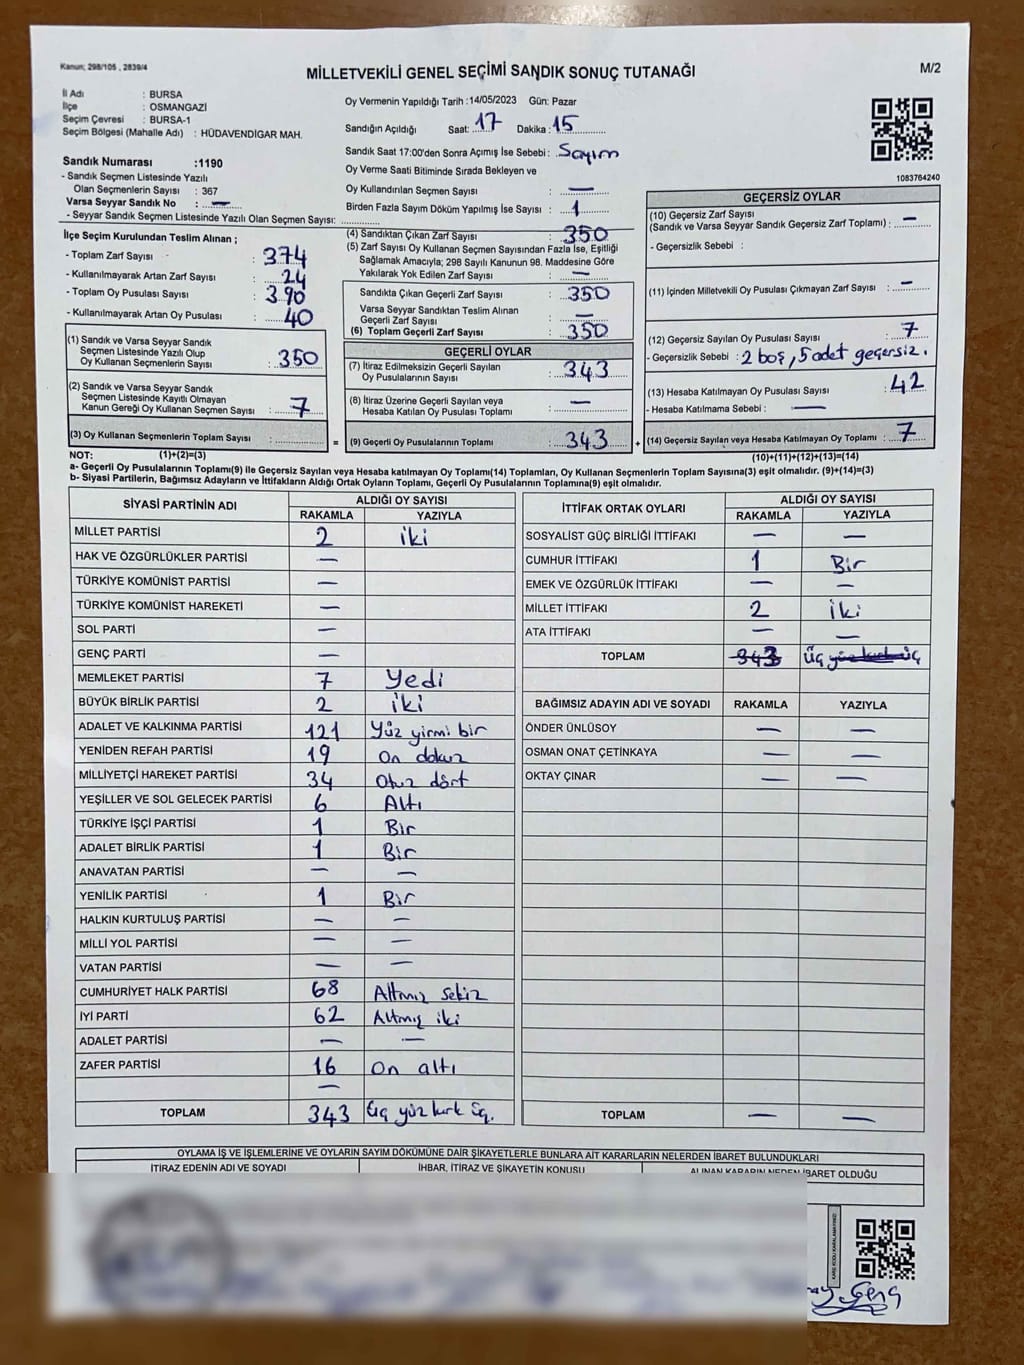 Kanun; 298/105 , 2839/4
MİLLETVEKİLİ GENEL SEÇİMİ SANDIK SONUÇ TUTANAĞI
M/2
İl Adı : BURSA
İlçe : OSMANGAZİ
Seçim Çevresi : BURSA-1
Seçim Bölgesi (Mahalle Adı) : HÜDAVENDİGAR MAH.
Oy Vermenin Yapıldığı Tarih :14/05/2023 Gün: Pazar
Sandığın Açıldığı Saat: 17 Dakika : 15
Sandık Saat 17:00'den Sonra Açımış İse Sebebi : Sayım
Oy Verme Saati Bitiminde Sırada Bekleyen ve
Oy Kullandırılan Seçmen Sayısı : —
Birden Fazla Sayım Döküm Yapılmış İse Sayısı : 1
1083764240
Sandık Numarası :1190
- Sandık Seçmen Listesinde Yazılı
Olan Seçmenlerin Sayısı : 367
Varsa Seyyar Sandık No : —
- Seyyar Sandık Seçmen Listesinde Yazılı Olan Seçmen Sayısı:
İlçe Seçim Kurulundan Teslim Alınan ;
- Toplam Zarf Sayısı : 374
- Kullanılmayarak Artan Zarf Sayısı : 24
- Toplam Oy Pusulası Sayısı : 390
- Kullanılmayarak Artan Oy Pusulası : 40
(1) Sandık ve Varsa Seyyar Sandık
Seçmen Listesinde Yazılı Olup
Oy Kullanan Seçmenlerin Sayısı : 350
(2) Sandık ve Varsa Seyyar Sandık
Seçmen Listesinde Kayıtlı Olmayan
Kanun Gereği Oy Kullanan Seçmen Sayısı : 7
(3) Oy Kullanan Seçmenlerin Toplam Sayısı :
(1)+(2)=(3)
(4) Sandıktan Çıkan Zarf Sayısı : 350
(5) Zarf Sayısı Oy Kullanan Seçmen Sayısından Fazla İse, Eşitliği
Sağlamak Amacıyla; 298 Sayılı Kanunun 98. Maddesine Göre
Yakılarak Yok Edilen Zarf Sayısı : —
Sandıkta Çıkan Geçerli Zarf Sayısı : 350
Varsa Seyyar Sandıktan Teslim Alınan
Geçerli Zarf Sayısı : —
(6) Toplam Geçerli Zarf Sayısı : 350
GEÇERLİ OYLAR
(7) İtiraz Edilmeksizin Geçerli Sayılan
Oy Pusulalarının Sayısı : 343
(8) İtiraz Üzerine Geçerli Sayılan veya
Hesaba Katılan Oy Pusulası Toplamı : —
= (9) Geçerli Oy Pusulalarının Toplamı : 343
GEÇERSİZ OYLAR
(10) Geçersiz Zarf Sayısı
(Sandık ve Varsa Seyyar Sandık Geçersiz Zarf Toplamı) : —
- Geçersizlik Sebebi :
(11) İçinden Milletvekili Oy Pusulası Çıkmayan Zarf Sayısı : —
(12) Geçersiz Sayılan Oy Pusulası Sayısı : 7
- Geçersizlik Sebebi : 2 boş, 5 adet geçersiz.
(13) Hesaba Katılmayan Oy Pusulası Sayısı : 42
- Hesaba Katılmama Sebebi : —
+ (14) Geçersiz Sayılan veya Hesaba Katılmayan Oy Toplamı : 7
(10)+(11)+(12)+(13)=(14)
NOT:
a- Geçerli Oy Pusulalarının Toplamı(9) ile Geçersiz Sayılan veya Hesaba katılmayan Oy Toplamı(14) Toplamları, Oy Kullanan Seçmenlerin Toplam Sayısına(3) eşit olmalıdır. (9)+(14)=(3)
b- Siyasi Partilerin, Bağımsız Adayların ve İttifakların Aldığı Ortak Oyların Toplamı, Geçerli Oy Pusulalarının Toplamına(9) eşit olmalıdır.
SİYASİ PARTİNİN ADI ALDIĞI OY SAYISI
RAKAMLA YAZIYLA
MİLLET PARTİSİ 2 iki
HAK VE ÖZGÜRLÜKLER PARTİSİ —
TÜRKİYE KOMÜNİST PARTİSİ —
TÜRKİYE KOMÜNİST HAREKETİ —
SOL PARTİ —
GENÇ PARTİ —
MEMLEKET PARTİSİ 7 Yedi
BÜYÜK BİRLİK PARTİSİ 2 iki
ADALET VE KALKINMA PARTİSİ 121 Yüz yirmi bir
YENİDEN REFAH PARTİSİ 19 On dokuz
MİLLİYETÇİ HAREKET PARTİSİ 34 Otuz dört
YEŞİLLER VE SOL GELECEK PARTİSİ 6 Altı
TÜRKİYE İŞÇİ PARTİSİ 1 Bir
ADALET BİRLİK PARTİSİ 1 Bir
ANAVATAN PARTİSİ — —
YENİLİK PARTİSİ 1 Bir
HALKIN KURTULUŞ PARTİSİ — —
MİLLİ YOL PARTİSİ — —
VATAN PARTİSİ — —
CUMHURİYET HALK PARTİSİ 68 Altmış sekiz
İYİ PARTİ 62 Altmış iki
ADALET PARTİSİ — —
ZAFER PARTİSİ 16 On altı
—
TOPLAM 343 Üç yüz kırk üç.
İTTİFAK ORTAK OYLARI ALDIĞI OY SAYISI
RAKAMLA YAZIYLA
SOSYALİST GÜÇ BİRLİĞİ İTTİFAKI — —
CUMHUR İTTİFAKI 1 Bir
EMEK VE ÖZGÜRLÜK İTTİFAKI — —
MİLLET İTTİFAKI 2 İki
ATA İTTİFAKI — —
TOPLAM 343 Üç yüz kırk üç
BAĞIMSIZ ADAYIN ADI VE SOYADI RAKAMLA YAZIYLA
ÖNDER ÜNLÜSOY — —
OSMAN ONAT ÇETİNKAYA — —
OKTAY ÇINAR — —
TOPLAM — —
OYLAMA İŞ VE İŞLEMLERİNE VE OYLARIN SAYIM DÖKÜMÜNE DAİR ŞİKAYETLERLE BUNLARA AİT KARARLARIN NELERDEN İBARET BULUNDUKLARI
İTİRAZ EDENİN ADI VE SOYADI İHBAR, İTİRAZ VE ŞİKAYETİN KONUSU ALINAN KARARIN NEDEN İBARET OLDUĞU